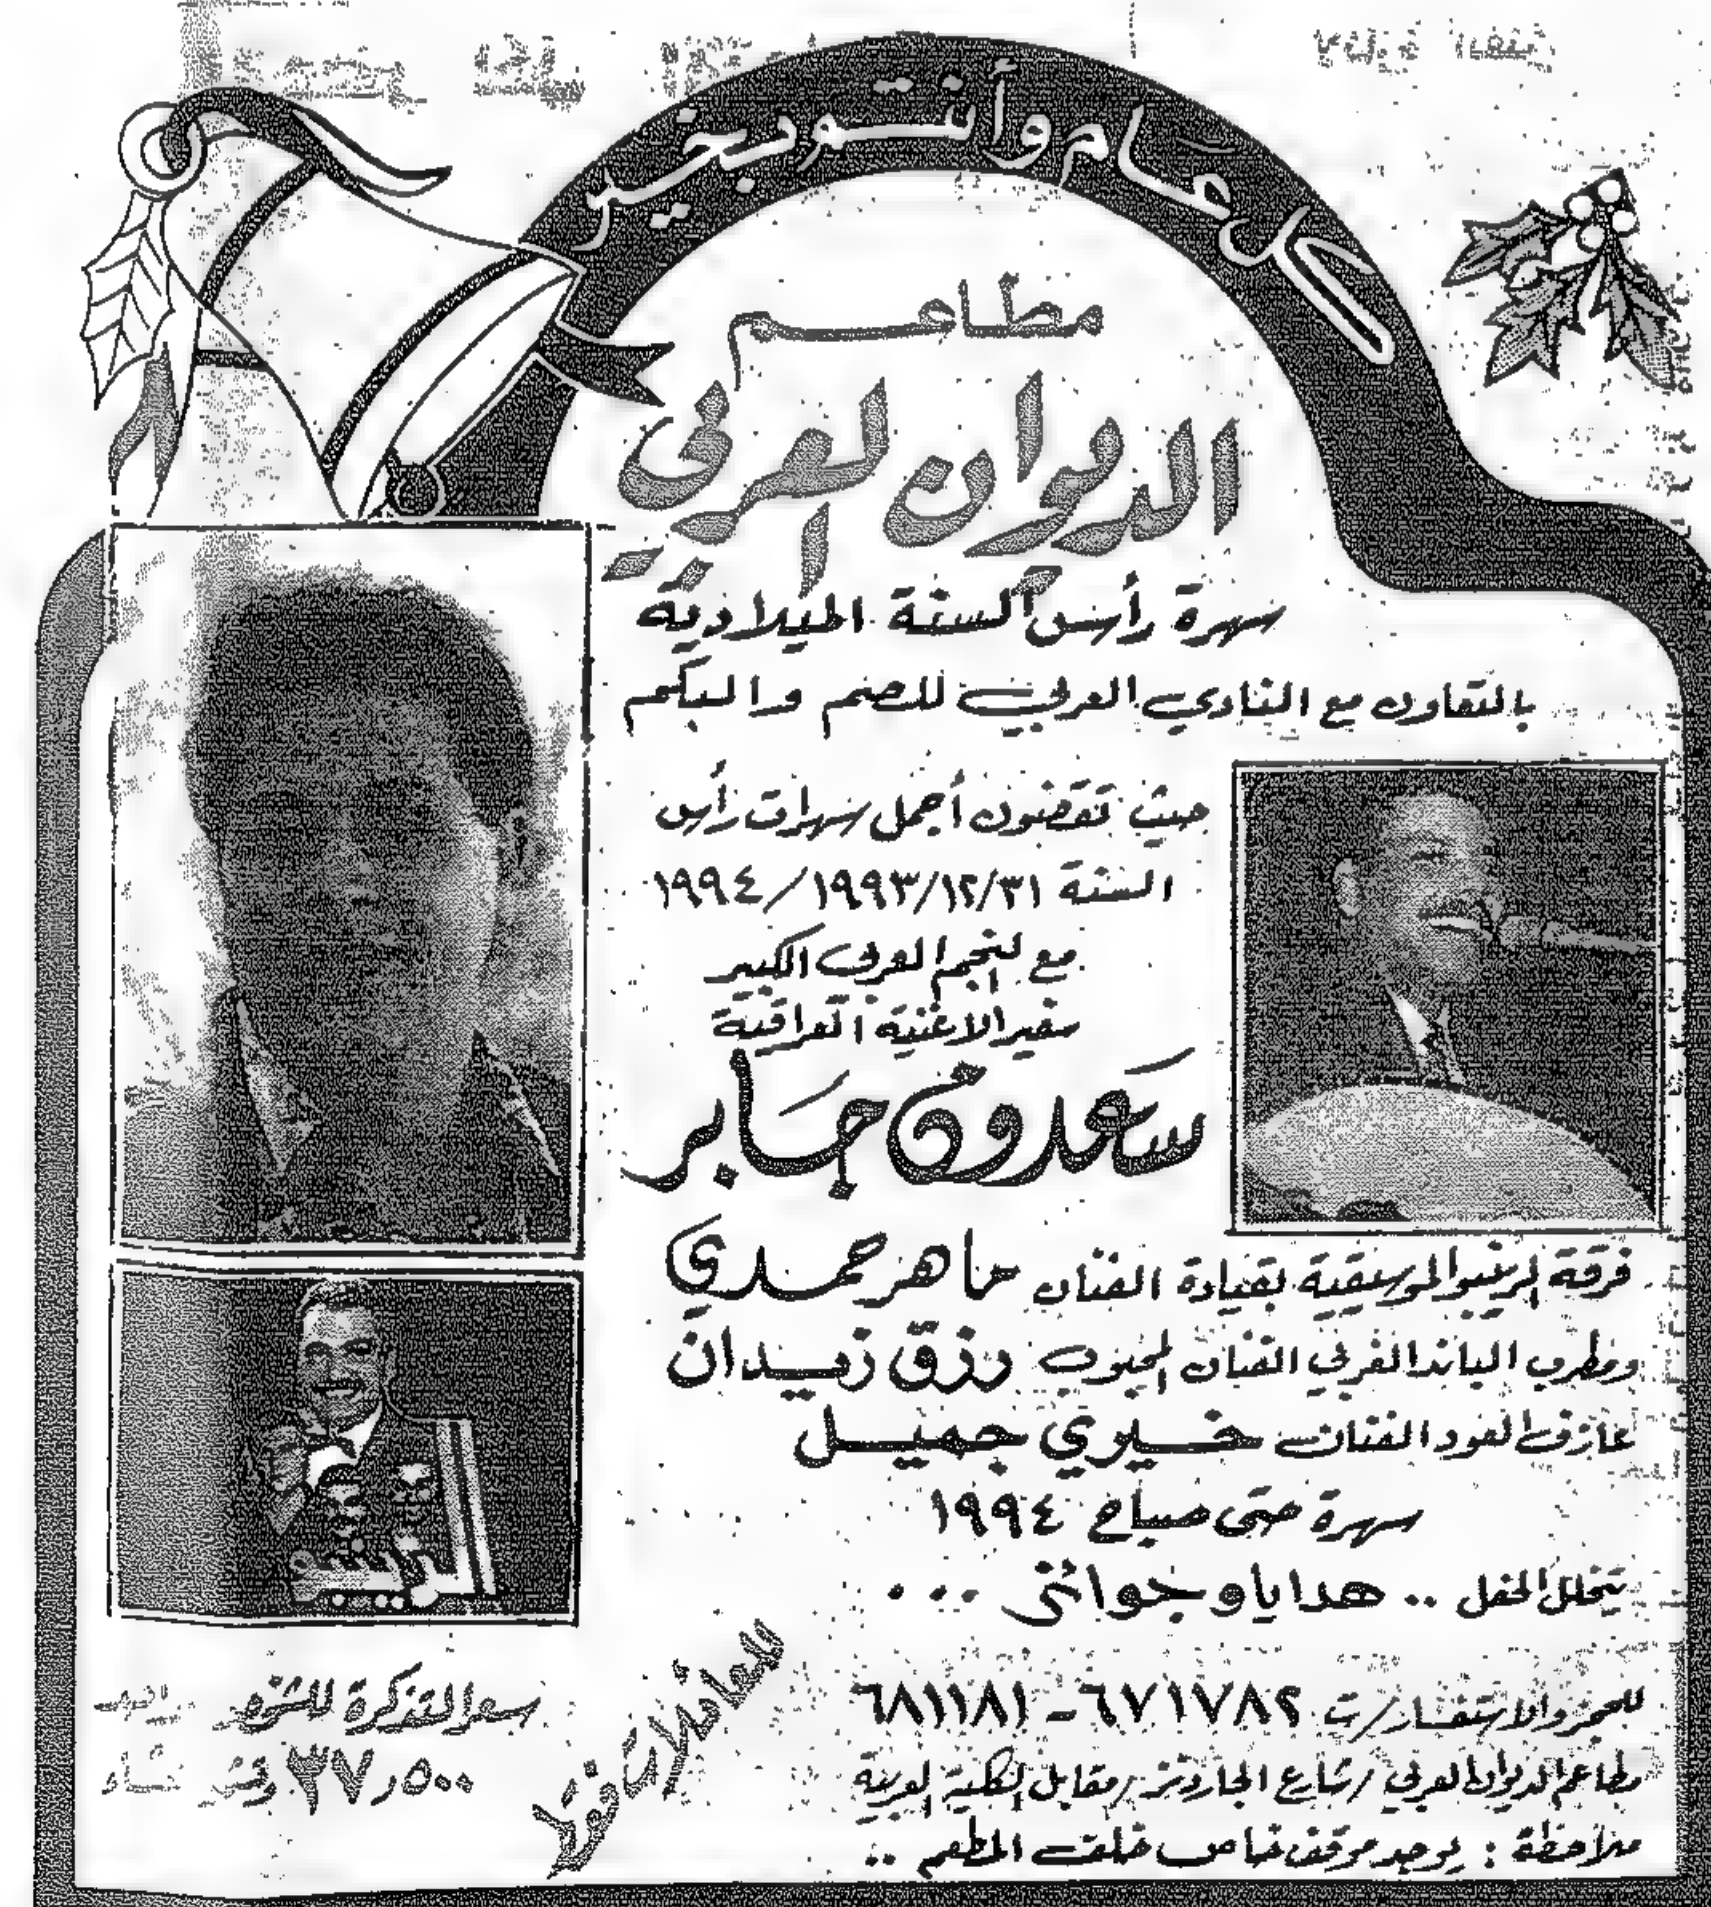 كل عام وأنتم بخير
مطاعم
الديوان العربي
سهرة رأس السنة الميلادية
بالتعاون مع النادي العربي للصم والبكم
حيث تقضون أجمل سهرات رأس
السنة ٣١/١٢/١٩٩٣/١٩٩٤
مع النجم العربي الكبير
سفير الاغنية العراقية
سعدون جابر
فرقة الرينبو الموسيقية بقيادة الفنان ماهر حمدي
ومطرب الباند الغربي الفنان المحبوب رزق زيدان
عازف العود الفنان خيري جميل
سهرة حتى صباح ١٩٩٤
يتخلل الحفل .. هدايا وجوائز ...
للحجز والاستفسار/ت ٦٧١٧٨٢ - ٦٨١١٨١
مطاعم الديوان العربي / شارع الجاردنز / مقابل الكلية العربية
ملاحظة : يوجد موقف خاص خلف المطعم ..
للعائلات فقط
سعر التذكرة للشخص
٣٧٫٥٠٠ عشاء